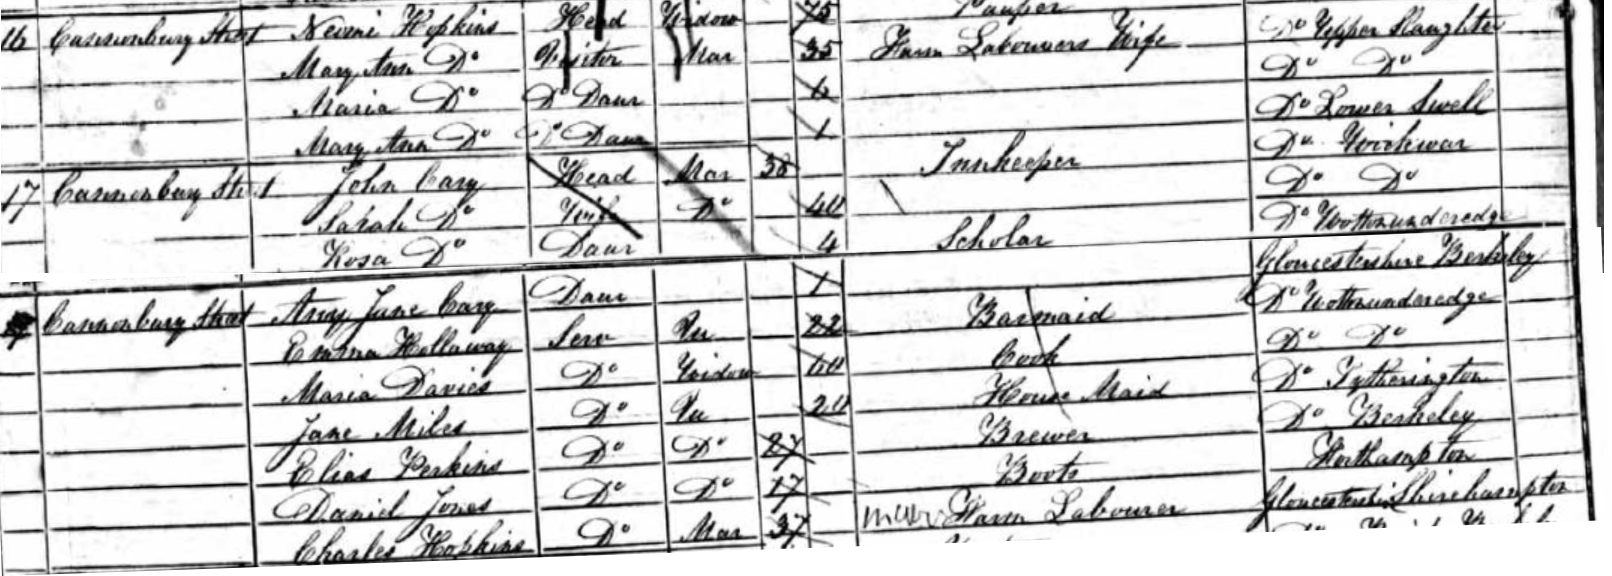 16 Cannonbury Street Neomi Hopkins Head Widow 75 Pauper Do Upper Slaughter
Mary Ann Do Visitor Mar 35 Farm Labourers Wife Do Do
Maria Do Do Daur 6 Do Lower Swell
Mary Ann Do Do Daur 1 Do Wickwar
17 Cannonbury Street John Cary Head Mar 38 Innkeeper Do Do
Sarah Do Wife Do 40 Do Wottonunderedge
Rosa Do Daur 4 Scholar Gloucestershire Berkeley
Cannonbury Street Amy Jane Cary Daur 1 Do Wottonunderedge
Emma Hollaway Serv Un 22 Barmaid Do Do
Maria Davies Do Widow 60 Cook Do Tytherington
Jane Miles Do Un 20 House Maid Do Berkeley
Elias Perkins Do Do 27 Brewer Northampton
Daniel Jones Do Do 17 Boots Gloucestershire Shirehampton
Charles Hopkins Do Mar 37 Farm Labourer